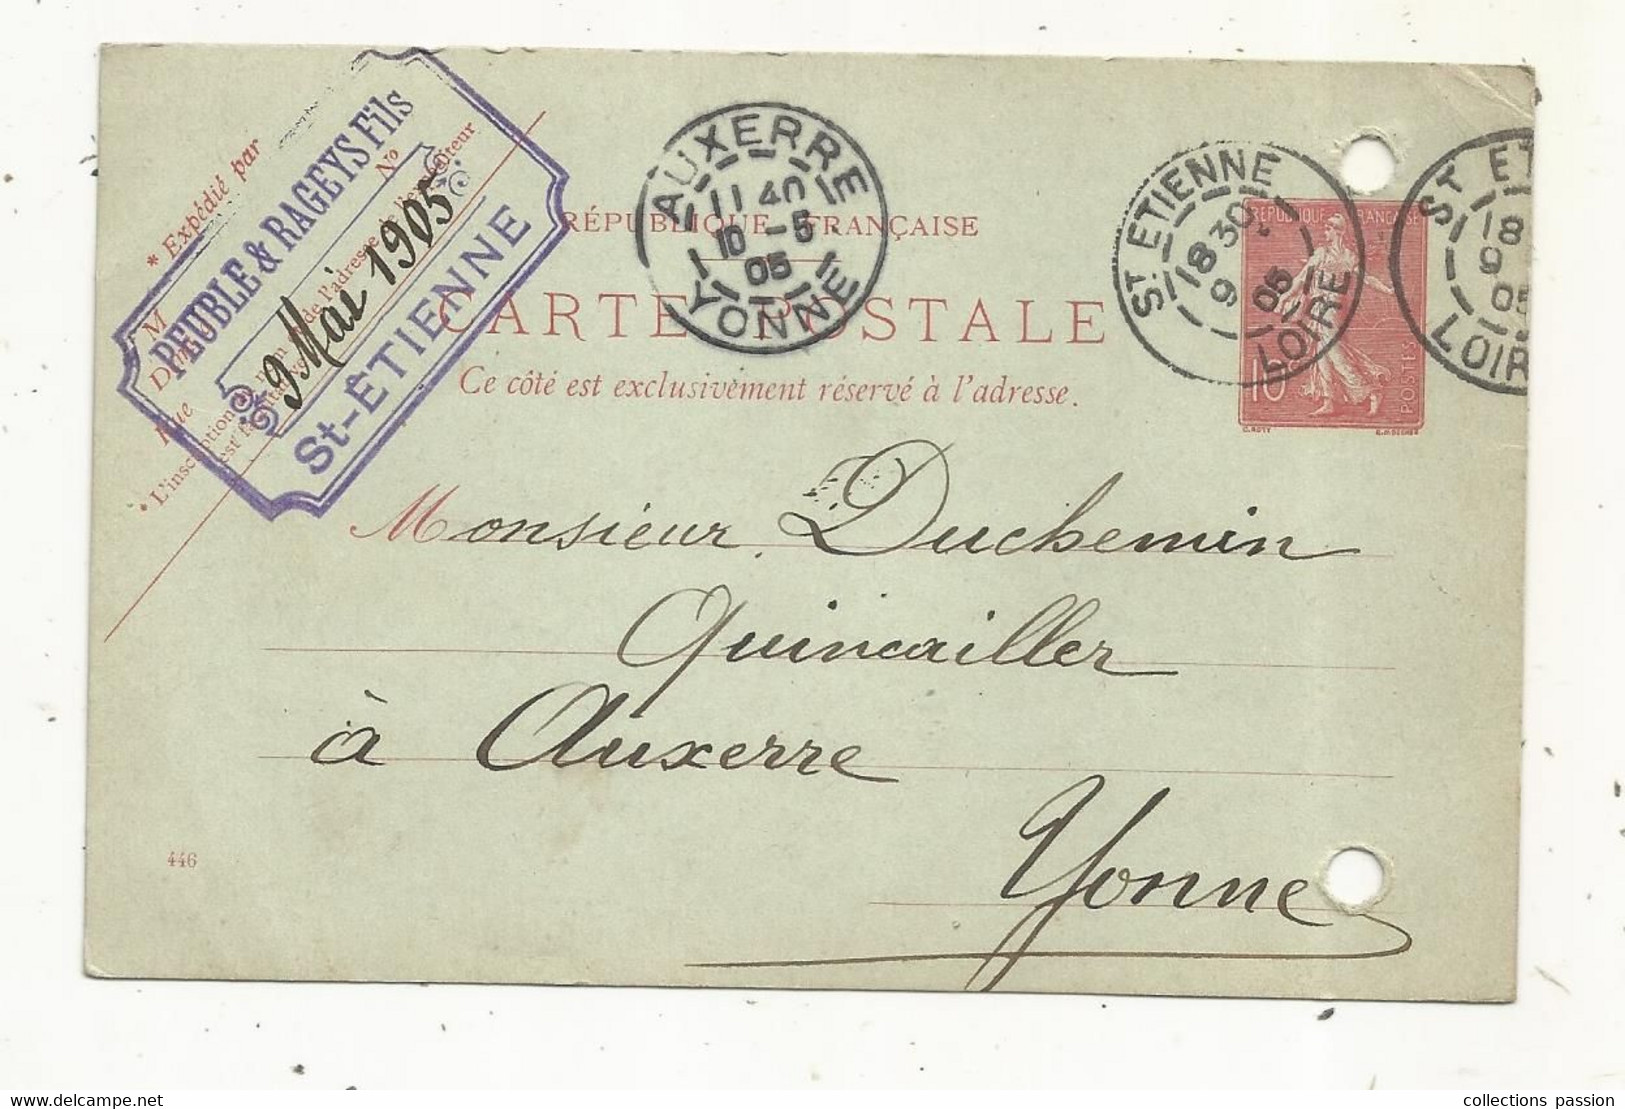 * Expédié par
M
D
Rue
No
PEUBLE & RAGEYS Fils
9 Mai 1905
St-ÉTIENNE
* L'inscription du nom et de l'adresse de l'expéditeur
est facultative
RÉPUBLIQUE FRANÇAISE
CARTE POSTALE
Ce côté est exclusivement réservé à l'adresse.
AUXERRE
11 40
10 -5
05
YONNE
ST ETIENNE
18 30
9 -5
05
LOIRE
REPUBLIQUE FRANÇAISE
10
POSTES
O. ROTY
ST ET
18
9
05
LOIR
Monsieur Duchemin
Quincailler
à Auxerre
Yonne
446
collections passion